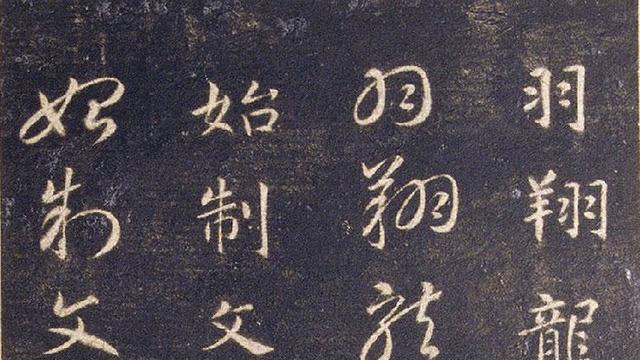 羽翔龍
羽翔龍
始制文
始制文